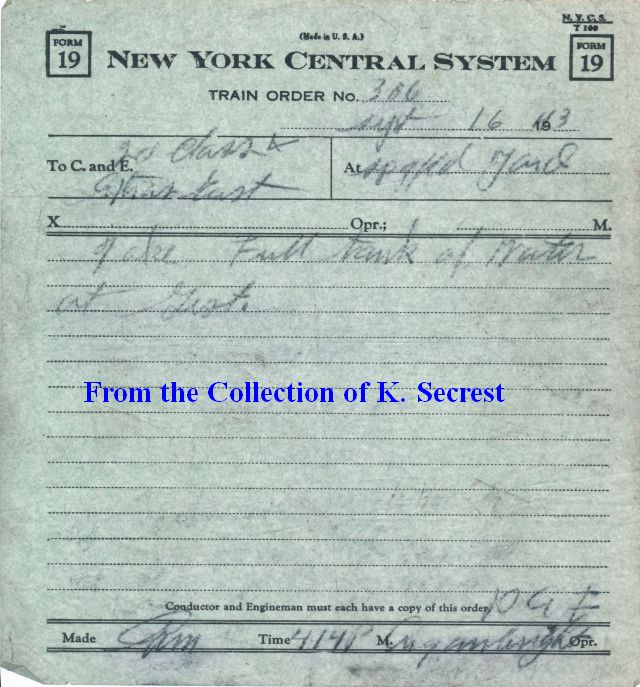 N. Y. C. S.
T 100
(Made in U. S. A.)
FORM
19
NEW YORK CENTRAL SYSTEM
FORM
19
TRAIN ORDER No. 306
Sept 16 1943
To C. and E. 3d Class &
Extras East
At Spgfld Yard
X Opr.; M.
Take Full tank of Water
at Gest.
From the Collection of K. Secrest
Conductor and Engineman must each have a copy of this order.
Made Time 414P M. Opr.